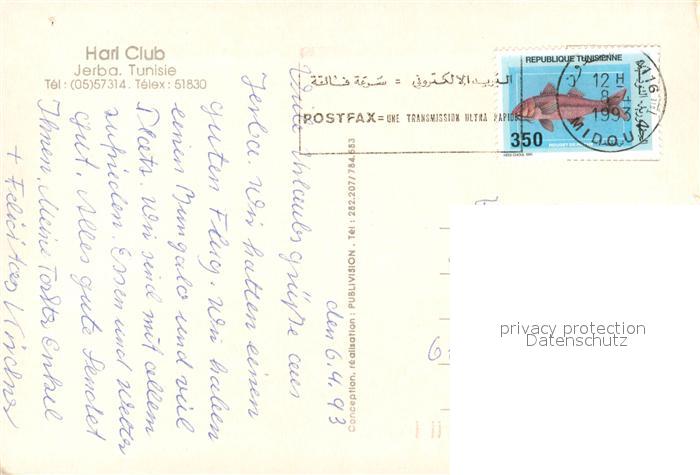 Hari Club
Jerba. Tunisie
Tél : (05)57314. Télex : 51830
البريد الإلكتروني = سرعة فائقة
POSTFAX = UNE TRANSMISSION ULTRA RAPIDE
REPUBLIQUE TUNISIENNE
12 H
8 - 4
1993
MIDOU
350
den 6.4.93
Viele Urlaubs Grüße aus
Jerba. Wir hatten einen
guten Flug. Wir haben
einen Bungalo und viel
Platz. Wir sind mit allem
zufrieden. Essen und Wetter
gut. Alles gute Sendet
Ihnen, Meine Tochter Enkel
+ Felicitas
Conception, réalisation : PUBLIVISION . Tél : 282.207/784.553
privacy protection
Datenschutz